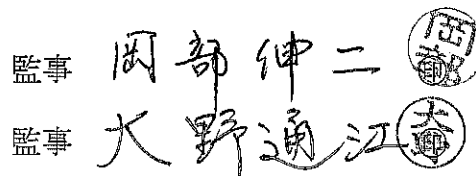 監事 岡部伸二 岡部 印
監事 大野通江 大野 印